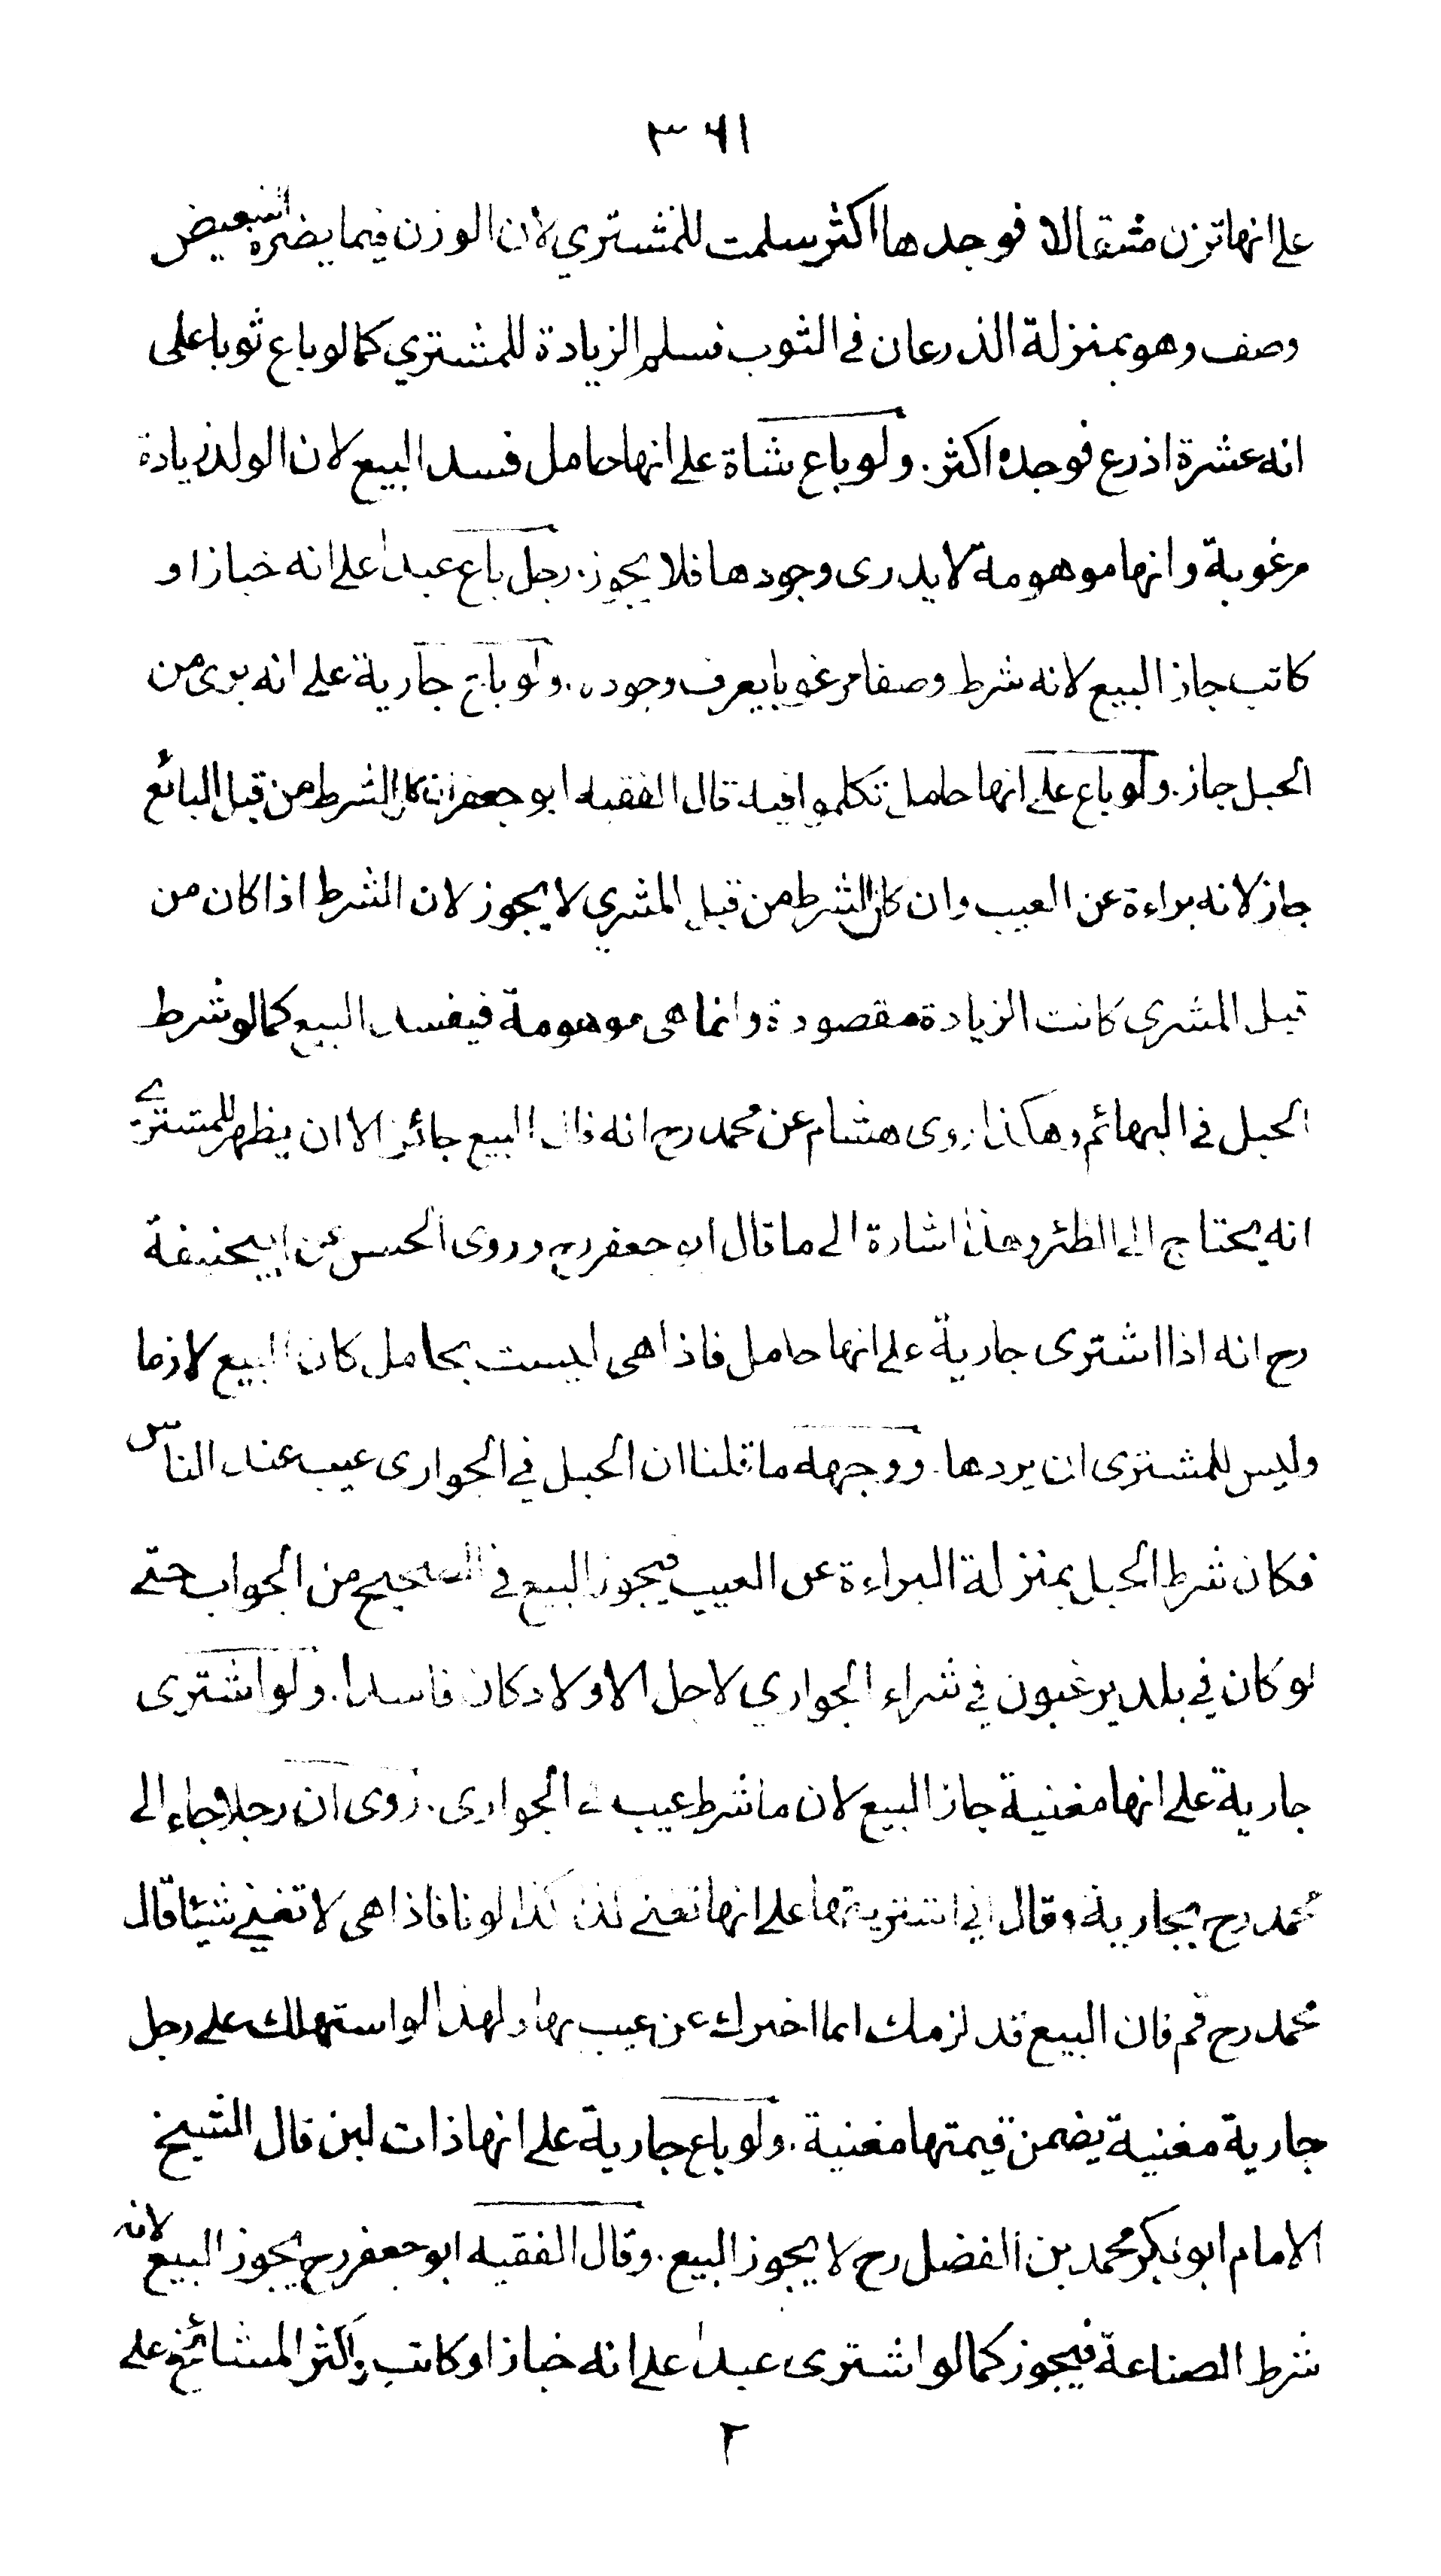 ٣٦١
على انها تزن مثقالا فوجدها اكثر سلمت للمشتري لان الوزن فيما يضره التبعيض
وصف وهو بمنزلة الذرعان في الثوب فسلم الزيادة للمشتري كما لو باع ثوبا على
انه عشرة اذرع فوجده اكثر. ولو باع شاة على انها حامل فسد البيع لان الولد زيادة
مرغوبة وانها موهومة لا يدرى وجودها فلا يجوز. رجل باع عبدا على انه خباز او
كاتب جاز البيع لانه شرط وصفا مرغوبا يعرف وجوده. ولو باع جارية على انه برئ من
الحبل جاز. ولو باع على انها حامل تكلموا فيه قال الفقيه ابو جعفر ان كان الشرط من قبل البائع
جاز لانه براءة عن العيب وان كان الشرط من قبل المشري لا يجوز لان الشرط اذا كان من
قبل المشري كانت الزيادة مقصودة وانما هى موهومة فيفسد البيع كما لو شرط
الحبل في البهائم وهكذا روى هشام عن محمد رح انه قال البيع جائز الا ان يظهر للمشتري
انه يحتاج الى الظئر وهذا اشارة الى ما قال ابو جعفر رح وروى الحسن عن ابيحنيفة
رح انه اذا اشترى جارية على انها حامل فاذا هى ليست بحامل كان البيع لازما
وليس للمشترى ان يردها. ووجهه ما قلنا ان الحبل في الجوارى عيب عند الناس
فكان شرط الحبل بمنزلة البراءة عن العيب فيجوز البيع في الصحيح من الجواب حتى
لو كان في بلد يرغبون في شراء الجواري لاجل الاولاد كان فاسدا. ولو اشترى
جارية على انها مغنية جاز البيع لان ما شرط عيب في الجوارى. روى ان رجلا جاء الى
محمد رح بجارية وقال اني اشتريتها على انها تغني كذا كذا لونا فاذا هى لا تغني شيئا قال
محمد رح قم فان البيع قد لزمك انما اخبرك عن عيب بها ولهذا لو استهلك على رجل
جارية مغنية يضمن قيمتها مغنية. ولو باع جارية على انها ذات لبن قال الشيخ
الامام ابو بكر محمد بن الفضل رح لا يجوز البيع. وقال الفقيه ابو جعفر رح يجوز البيع لانه
شرط الصناعة فيجوز كما لو اشترى عبدا على انه خباز او كاتب واكثر المشائخ على
٢